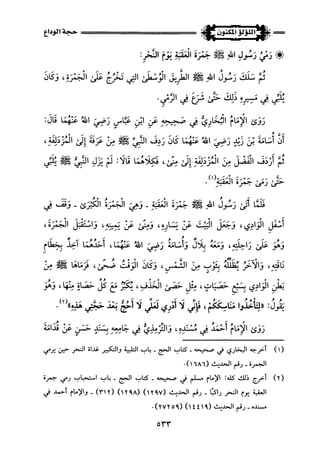 حجة الوداع
اللؤلؤ المكنون
رَمْيُ رَسُولِ اللهِ ﷺ جَمْرَةَ الْعَقَبَةِ يَوْمَ النَّحْرِ:
ثُمَّ سَلَكَ رَسُولُ اللهِ ﷺ الطَّرِيقَ الْوُسْطَى الَّتِي تَخْرُجُ عَلَى الْجَمْرَةِ، وَكَانَ
يُلَبِّي فِي مَسِيرِهِ ذَلِكَ حَتَّى شَرَعَ فِي الرَّمْيِ.
رَوَى الْإِمَامُ الْبُخَارِيُّ فِي صَحِيحِهِ عَنِ ابْنِ عَبَّاسٍ رَضِيَ اللهُ عَنْهُمَا قَالَ:
أَنَّ أُسَامَةَ بْنَ زَيْدٍ رَضِيَ اللهُ عَنْهُمَا كَانَ رِدْفَ النَّبِيِّ ﷺ مِنْ عَرَفَةَ إِلَى الْمُزْدَلِفَةِ،
ثُمَّ أَرْدَفَ الْفَضْلَ مِنَ الْمُزْدَلِفَةِ إِلَى مِنًى، فَكِلَاهُمَا قَالَا: لَمْ يَزَلِ النَّبِيُّ ﷺ يُلَبِّي
حَتَّى رَمَى جَمْرَةَ الْعَقَبَةِ(١).
فَلَمَّا أَتَى رَسُولُ اللهِ ﷺ جَمْرَةَ الْعَقَبَةِ ـ وَهِيَ الْجَمْرَةُ الْكُبْرَى ـ وَقَفَ فِي
أَسْفَلِ الْوَادِي، وَجَعَلَ الْبَيْتَ عَنْ يَسَارِهِ، وَمِنًى عَنْ يَمِينِهِ، وَاسْتَقْبَلَ الْجَمْرَةَ،
وَهُوَ عَلَى رَاحِلَتِهِ، وَمَعَهُ بِلَالٌ وَأُسَامَةُ رَضِيَ اللهُ عَنْهُمَا، أَحَدُهُمَا آخِذٌ بِخِطَامِ
نَاقَتِهِ، وَالْآخَرُ يُظَلِّلُهُ بِثَوْبٍ مِنَ الشَّمْسِ، وَكَانَ الْوَقْتُ ضُحًى، فَرَمَاهَا ﷺ مِنْ
بَطْنِ الْوَادِي بِسَبْعِ حَصَيَاتٍ، مِثْلِ حَصَى الْخَذْفِ، يُكَبِّرُ مَعَ كُلِّ حَصَاةٍ مِنْهَا، وَهُوَ
يَقُولُ: «لِتَأْخُذُوا مَنَاسِكَكُمْ، فَإِنِّي لَا أَدْرِي لَعَلِّي لَا أَحُجُّ بَعْدَ حَجَّتِي هَذِهِ»(٢).
رَوَى الْإِمَامُ أَحْمَدُ فِي مُسْنَدِهِ، وَالتِّرْمِذِيُّ فِي جَامِعِهِ بِسَنَدٍ حَسَنٍ عَنْ قُدَامَةَ
(١) أخرجه البخاري في صحيحه ـ كتاب الحج ـ باب التلبية والتكبير غداة النحر حين يرمي
الجمرة ـ رقم الحديث (١٦٨٦).
(٢) أخرج ذلك كله: الإمام مسلم في صحيحه ـ كتاب الحج ـ باب استحباب رمي جمرة
العقبة يوم النحر راكبًا ـ رقم الحديث (١٢٩٧) (١٢٩٨) (٣١٢) ـ والإمام أحمد في
مسنده ـ رقم الحديث (١٤٤١٩) (٢٧٢٥٩).
٥٣٣